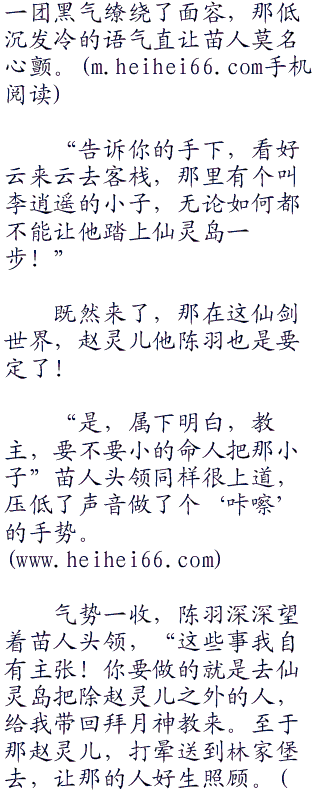 一团黑气缭绕了面容，那低
沉发冷的语气直让苗人莫名
心颤。(m.heihei66.com手机
阅读)
“告诉你的手下，看好
云来云去客栈，那里有个叫
李逍遥的小子，无论如何都
不能让他踏上仙灵岛一
步！”
既然来了，那在这仙剑
世界，赵灵儿他陈羽也是要
定了！
“是，属下明白，教
主，要不要小的命人把那小
子”苗人头领同样很上道，
压低了声音做了个‘咔嚓’
的手势。
(www.heihei66.com)
气势一收，陈羽深深望
着苗人头领，“这些事我自
有主张！你要做的就是去仙
灵岛把除赵灵儿之外的人，
给我带回拜月神教来。至于
那赵灵儿，打晕送到林家堡
去，让那的人好生照顾。(